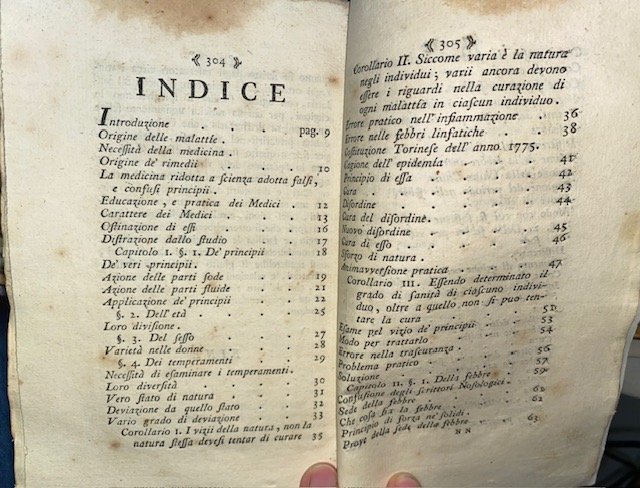 ⟪ 304 ⟫
INDICE
Introduzione . . . pag. 9
Origine delle malattíe.
Necessità della medicina.
Origine de' rimedii . . . 10
La medicina ridotta a scienza adotta falsi,
e confusi principii.
Educazione, e pratica dei Medici . 12
Carattere dei Medici . . . 13
Ostinazione di essi . . . 16
Distrazione dallo studio . . . 17
Capitolo 1. §. 1. De' principii . 18
De' veri principii.
Azione delle parti sode . . . 19
Azione delle parti fluide . . . 21
Applicazione de' principii . . . 22
§. 2. Dell' età . . . 25
Loro divisione.
§. 3. Del sesso . . . 27
Varietà nelle donne . . . 28
§. 4. Dei temperamenti . 29
Necessità di esaminare i temperamenti.
Loro diversità . . . 30
Vero stato di natura . . . 31
Deviazione da quello stato . . . 32
Vario grado di deviazione . . . 33
Corollario 1. I vizii della natura, non la
natura stessa devesi tentar di curare 35
⟪ 305 ⟫
Corollario II. Siccome varia è la natura
negli individui; varii ancora devono
essere i riguardi nella curazione di
ogni malattía in ciascun individuo.
Errore pratico nell' infiammazione . 36
Errore nelle febbri linfatiche . 38
Costituzione Torinese dell' anno 1775.
Cagione dell' epidemía . . . 41
Principio di essa . . . 42
Cura . . . 43
Disordine . . . 44
Cura del disordine.
Nuovo disordine . . . 45
Cura di esso . . . 46
Sforzo di natura.
Animavversione pratica . . . 47
Corollario III. Essendo determinato il
grado di sanità di ciascuno indivi-
duo, oltre a quello non si può ten-
tare la cura . . . 51
Esame pel vizio de' principii . . . 53
Modo per trattarlo . . . 54
Errore nella trascuranza.
Problema pratico . . . 56
Soluzione . . . 57
Capitolo 11. §. 1. Della febbre . 59
Confusione degli scrittori Nosologici.
Sede della febbre . . . 61
Che cosa sia la febbre . . . 62
Principio di forza ne' solidi .
Prove della sede della febbre . . 63
N N